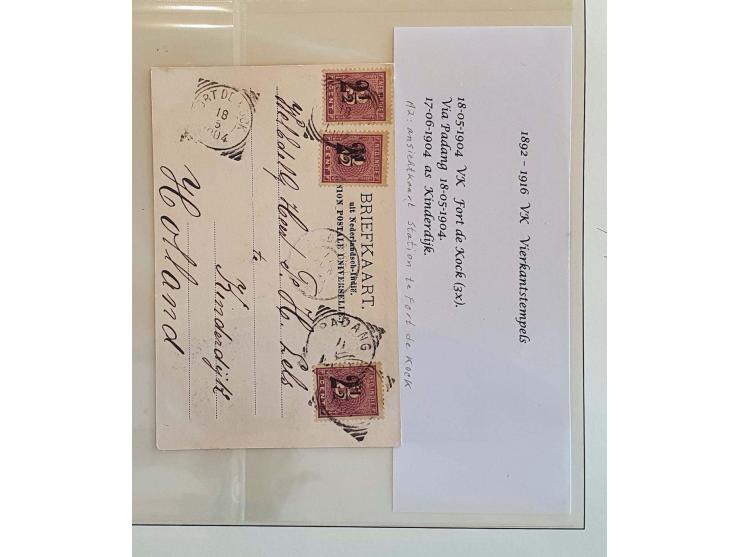 1892 - 1916 VK Vierkantstempels
18-05-1904 VK Fort de Kock (3x).
Via Padang 18-05-1904.
17-06-1904 as Kinderdijk.
A2: ansichtkaart Station te Fort de Kock
BRIEFKAART.
uit Nederlandsch-Indië.
UNION POSTALE UNIVERSELLE
te
Kinderdijk
Holland
FORT DE KOCK
18
5
1904
PADANG
2½
2½
2½